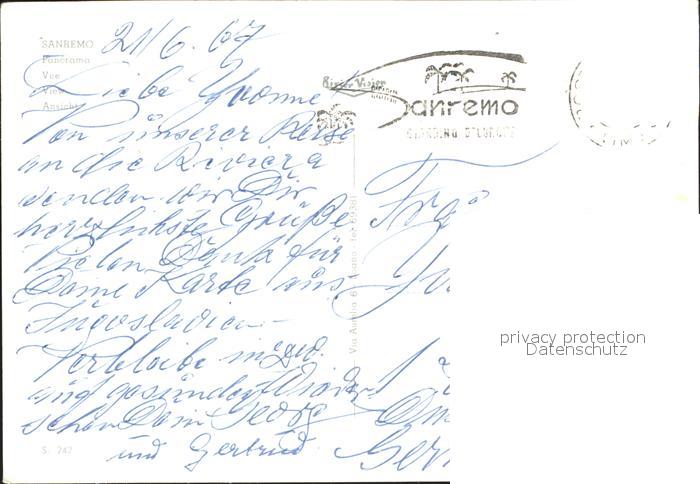 SANREMO
Panorama
Vue
View
Ansicht
21/6. 67
Liebe Yvonne
Von unserer Reise
an die Riviera
senden wir Dir
herzlichste Grüße
Vielen Dank für
Deine Karte aus
Jugoslavien
Verbleibe in
auf gesundes Wieder
sehen Dein Georg
und Gertrud
S. 242
Via Aurelia
Sanremo
GIARDINO D'EUROPA
privacy protection
Datenschutz